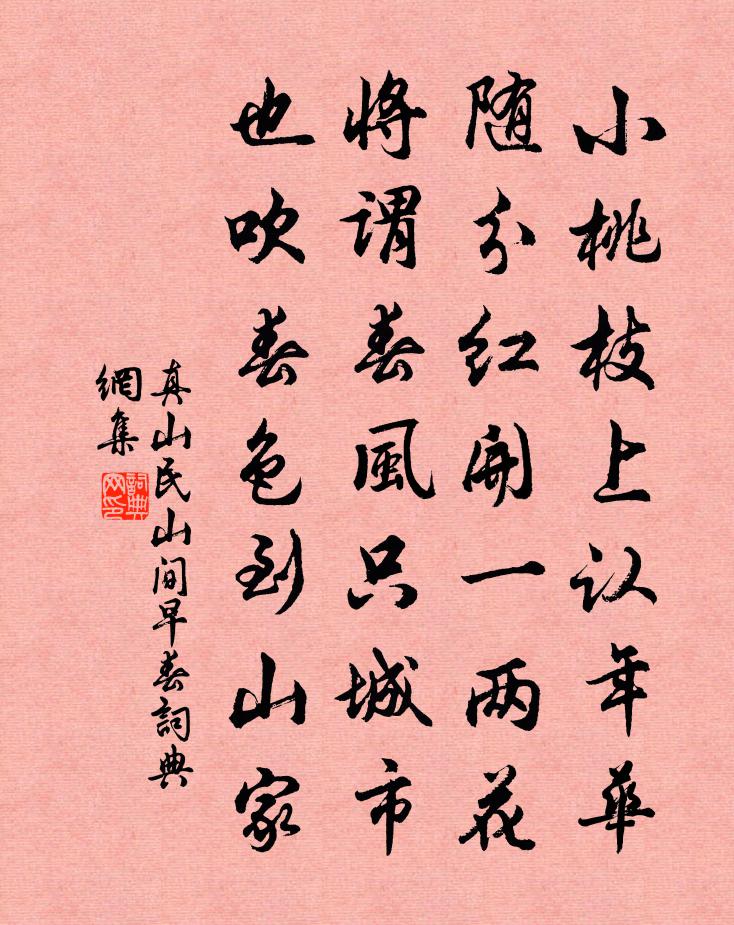 小桃枝上认年華
随分红開一两花
将谓春風只城市
也吹春色到山家
真山民山间早春詞典
網集
詞典
网印